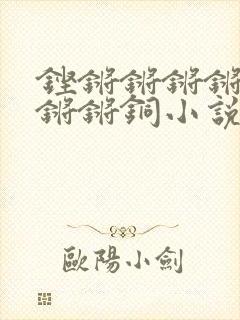 鏗鏘鏘鏘鏘
鏘鏘銅小說
歐陽小劍